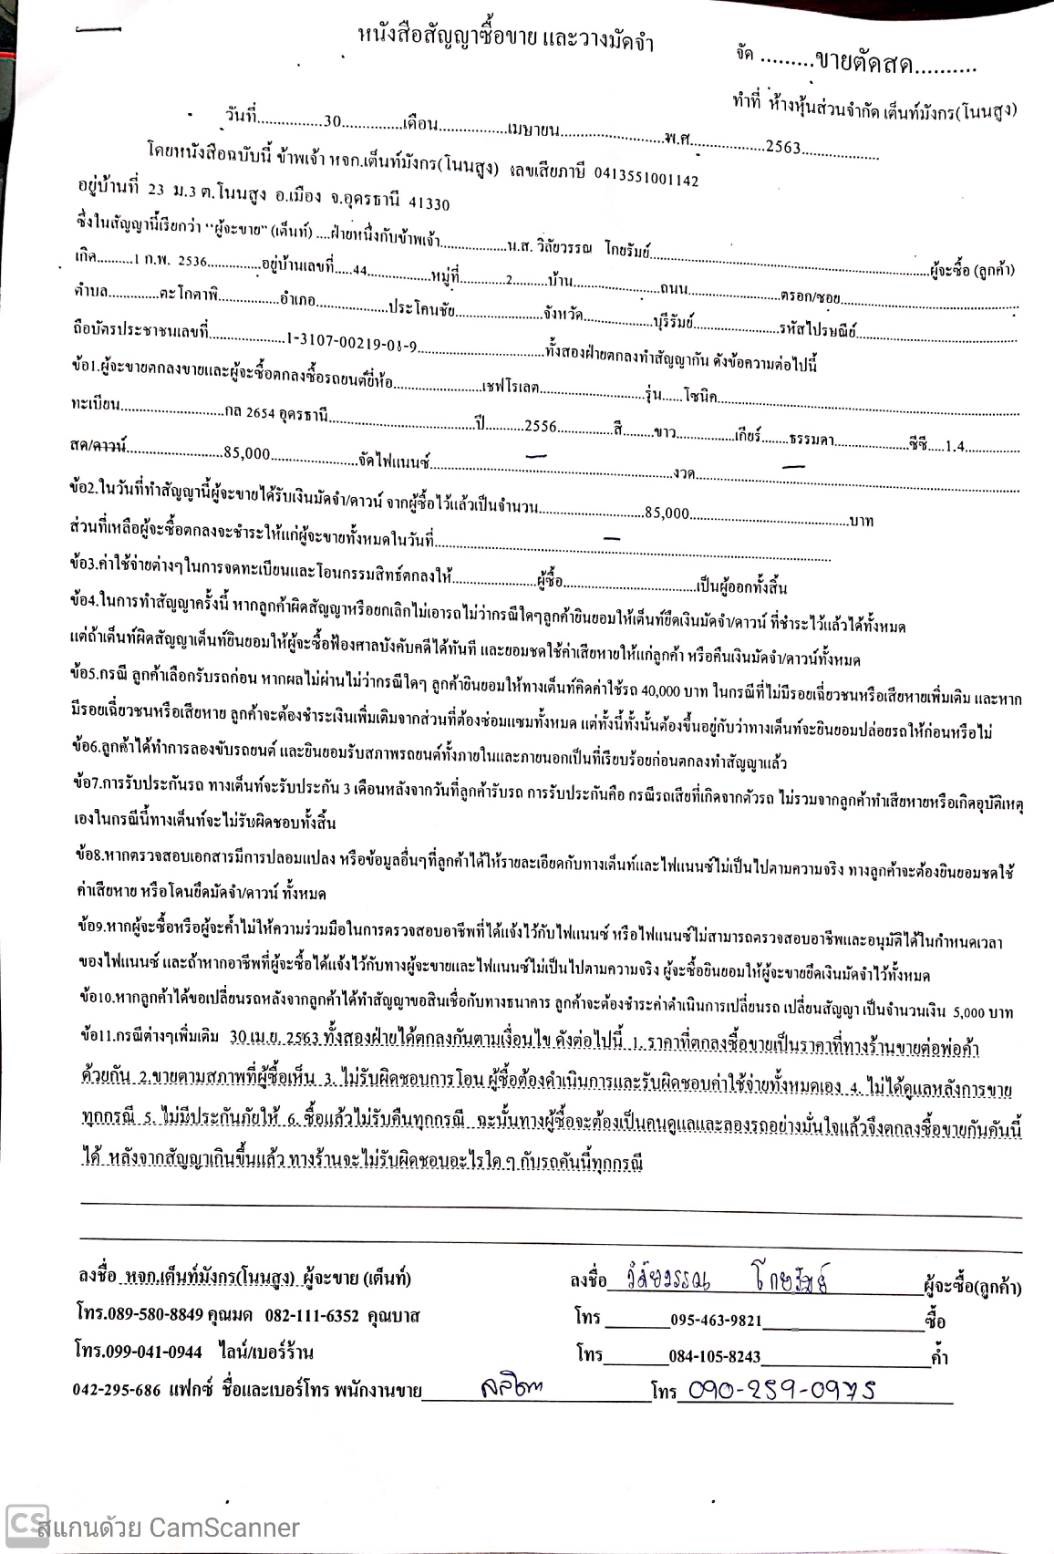 หนังสือสัญญาซื้อขาย และวางมัดจำ
จัด .........ขายตัดสด..........
ทำที่ ห้างหุ้นส่วนจำกัด เต็นท์มังกร(โนนสูง)
วันที่...............30..............เดือน...............เมษายน.......................พ.ศ................2563.................
โดยหนังสือฉบับนี้ ข้าพเจ้า หจก.เต็นท์มังกร(โนนสูง) เลขเสียภาษี 0413551001142
อยู่บ้านที่ 23 ม.3 ต.โนนสูง อ.เมือง จ.อุดรธานี 41330
ซึ่งในสัญญานี้เรียกว่า "ผู้จะขาย" (เต็นท์) ....ฝ่ายหนึ่งกับข้าพเจ้า...............น.ส. วิลัยวรรณ โกยรัมย์...............ผู้จะซื้อ (ลูกค้า)
เกิด.........1 ก.พ. 2536.............อยู่บ้านเลขที่.....44...............หมู่ที่............2........บ้าน...................ถนน....................ตรอก/ซอย....................
ตำบล............ตะโกตาพิ...............อำเภอ.................ประโคนชัย....................จังหวัด................บุรีรัมย์...................รหัสไปรษณีย์....................
ถือบัตรประชาชนเลขที่..................1-3107-00219-08-9..............................ทั้งสองฝ่ายตกลงทำสัญญากัน ดังข้อความต่อไปนี้
ข้อ1.ผู้จะขายตกลงขายและผู้จะซื้อตกลงซื้อรถยนต์ยี่ห้อ.....................เชฟโรเลต.........................รุ่น......โซนิค....................
ทะเบียน.........................กล 2654 อุดรธานี...................................ปี..........2556..............สี........ขาว..............เกียร์.......ธรรมดา.................ซีซี.....1.4.............
สด/ดาวน์.......................85,000.....................จัดไฟแนนซ์.....................—.....................งวด.....................—.....................
ข้อ2.ในวันที่ทำสัญญานี้ผู้จะขายได้รับเงินมัดจำ/ดาวน์ จากผู้ซื้อไว้แล้วเป็นจำนวน.........................85,000......................................บาท
ส่วนที่เหลือผู้จะซื้อตกลงจะชำระให้แก่ผู้จะขายทั้งหมดในวันที่.....................—.....................
ข้อ3.ค่าใช้จ่ายต่างๆในการจดทะเบียนและโอนกรรมสิทธ์ตกลงให้....................ผู้ซื้อ...............................เป็นผู้ออกทั้งสิ้น
ข้อ4.ในการทำสัญญาครั้งนี้ หากลูกค้าผิดสัญญาหรือยกเลิกไม่เอารถไม่ว่ากรณีใดๆลูกค้ายินยอมให้เต็นท์ยึดเงินมัดจำ/ดาวน์ ที่ชำระไว้แล้วได้ทั้งหมด
แต่ถ้าเต็นท์ผิดสัญญาเต็นท์ยินยอมให้ผู้จะซื้อฟ้องศาลบังคับคดีได้ทันที และยอมชดใช้ค่าเสียหายให้แก่ลูกค้า หรือคืนเงินมัดจำ/ดาวน์ทั้งหมด
ข้อ5.กรณี ลูกค้าเลือกรับรถก่อน หากผลไม่ผ่านไม่ว่ากรณีใดๆ ลูกค้ายินยอมให้ทางเต็นท์คิดค่าใช้รถ 40,000 บาท ในกรณีที่ไม่มีรอยเฉี่ยวชนหรือเสียหายเพิ่มเติม และหาก
มีรอยเฉี่ยวชนหรือเสียหาย ลูกค้าจะต้องชำระเงินเพิ่มเติมจากส่วนที่ต้องซ่อมแซมทั้งหมด แต่ทั้งนี้ทั้งนั้นต้องขึ้นอยู่กับว่าทางเต็นท์จะยินยอมปล่อยรถให้ก่อนหรือไม่
ข้อ6.ลูกค้าได้ทำการลองขับรถยนต์ และยินยอมรับสภาพรถยนต์ทั้งภายในและภายนอกเป็นที่เรียบร้อยก่อนตกลงทำสัญญาแล้ว
ข้อ7.การรับประกันรถ ทางเต็นท์จะรับประกัน 3 เดือนหลังจากวันที่ลูกค้ารับรถ การรับประกันคือ กรณีรถเสียที่เกิดจากตัวรถ ไม่รวมจากลูกค้าทำเสียหายหรือเกิดอุบัติเหตุ
เองในกรณีนี้ทางเต็นท์จะไม่รับผิดชอบทั้งสิ้น
ข้อ8.หากตรวจสอบเอกสารมีการปลอมแปลง หรือข้อมูลอื่นๆที่ลูกค้าได้ให้รายละเอียดกับทางเต็นท์และไฟแนนซ์ไม่เป็นไปตามความจริง ทางลูกค้าจะต้องยินยอมชดใช้
ค่าเสียหาย หรือโดนยึดมัดจำ/ดาวน์ ทั้งหมด
ข้อ9.หากผู้จะซื้อหรือผู้จะค้ำไม่ให้ความร่วมมือในการตรวจสอบอาชีพที่ได้แจ้งไว้กับไฟแนนซ์ หรือไฟแนนซ์ไม่สามารถตรวจสอบอาชีพและอนุมัติได้ในกำหนดเวลา
ของไฟแนนซ์ และถ้าหากอาชีพที่ผู้จะซื้อได้แจ้งไว้กับทางผู้จะขายและไฟแนนซ์ไม่เป็นไปตามความจริง ผู้จะซื้อยินยอมให้ผู้จะขายยึดเงินมัดจำไว้ทั้งหมด
ข้อ10.หากลูกค้าได้ขอเปลี่ยนรถหลังจากลูกค้าได้ทำสัญญาขอสินเชื่อกับทางธนาคาร ลูกค้าจะต้องชำระค่าดำเนินการเปลี่ยนรถ เปลี่ยนสัญญา เป็นจำนวนเงิน 5,000 บาท
ข้อ11.กรณีต่างๆเพิ่มเติม 30 เม.ย. 2563 ทั้งสองฝ่ายได้ตกลงกันตามเงื่อนไข ดังต่อไปนี้ 1. ราคาที่ตกลงซื้อขายเป็นราคาที่ทางร้านขายต่อพ่อค้า
ด้วยกัน 2.ขายตามสภาพที่ผู้ซื้อเห็น 3. ไม่รับผิดชอบการโอน ผู้ซื้อต้องดำเนินการและรับผิดชอบค่าใช้จ่ายทั้งหมดเอง 4. ไม่ได้ดูแลหลังการขาย
ทุกกรณี 5. ไม่มีประกันภัยให้ 6. ซื้อแล้วไม่รับคืนทุกกรณี ฉะนั้นทางผู้ซื้อจะต้องเป็นคนดูแลและลองรถอย่างมั่นใจแล้วจึงตกลงซื้อขายกันคันนี้
ได้ หลังจากสัญญาเกินขึ้นแล้ว ทางร้านจะไม่รับผิดชอบอะไรใด ๆ กับรถคันนี้ทุกกรณี
ลงชื่อ หจก.เต็นท์มังกร(โนนสูง) ผู้จะขาย (เต็นท์)
ลงชื่อ วิลัยวรรณ โกยรัมย์ ผู้จะซื้อ(ลูกค้า)
โทร.089-580-8849 คุณมด 082-111-6352 คุณบาส
โทร 095-463-9821 ซื้อ
โทร.099-041-0944 ไลน์/เบอร์ร้าน
โทร 084-105-8243 ค้ำ
042-295-686 แฟกซ์ ชื่อและเบอร์โทร พนักงานขาย
โทร 090-259-0975
CS สแกนด้วย CamScanner